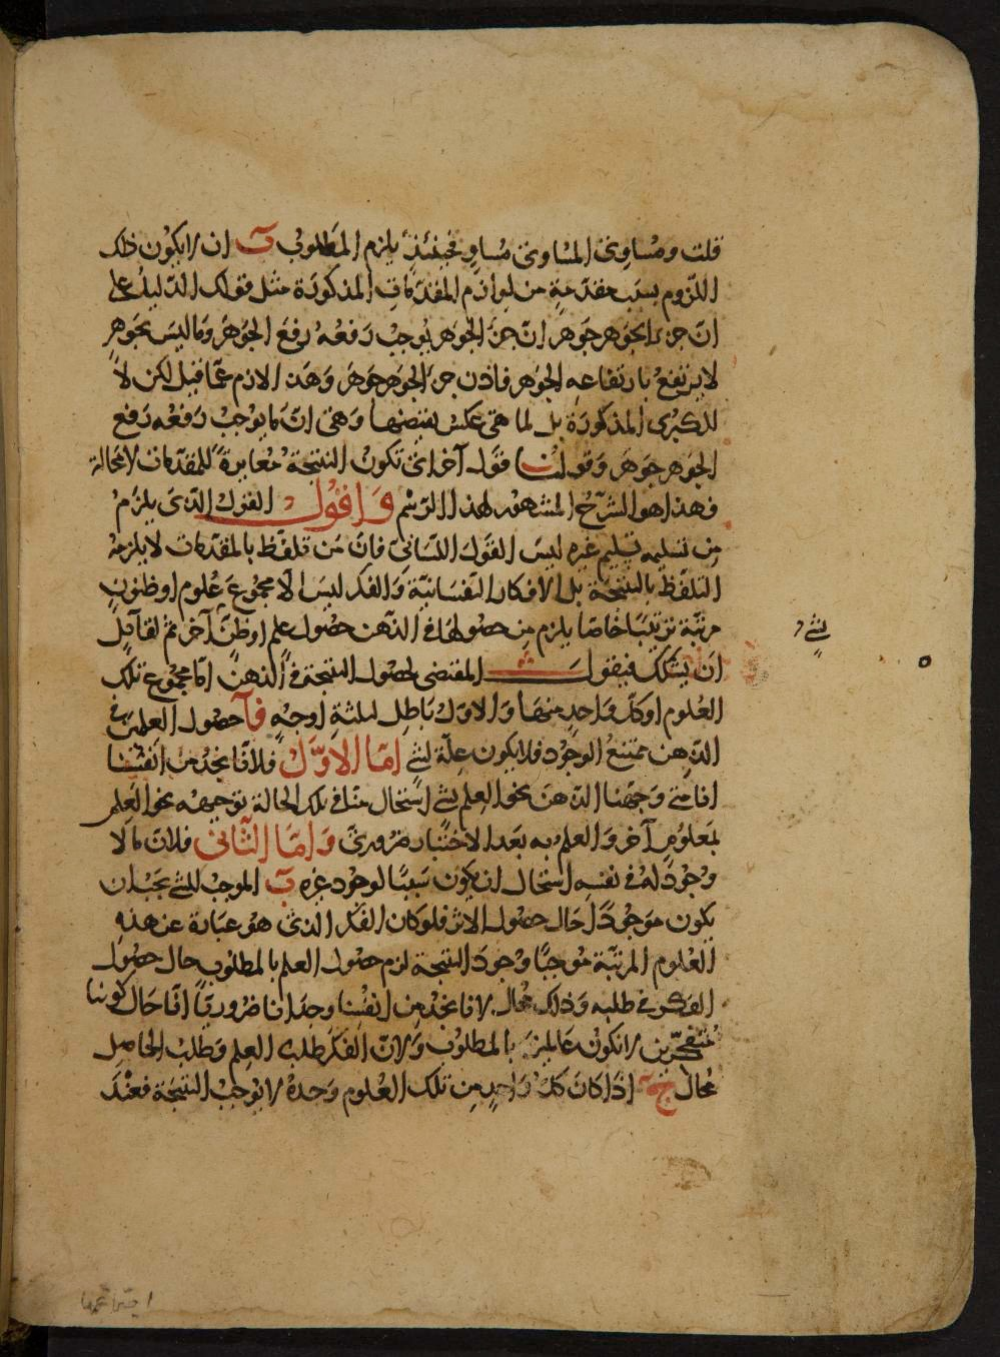 قلت ومساوي المساوي مساو فحينئذ يلزم المطلوب ب ان لا يكون ذلك
اللزوم بسبب مقدمة من لوازم المقدمات المذكورة مثل قولك الدليل على
ان جزء الجوهر جوهر ان جزء الجوهر يوجب رفعه رفع الجوهر وما ليس بجوهر
لا يرتفع بارتفاعه الجوهر فاذن جزء الجوهر جوهر وهذا لازم عما قيل لكن لا
للكبرى المذكورة بل لما هي عكس نقيضها وهي ان ما يوجب رفعه رفع
الجوهر جوهر وقولنا قول آخر اي تكون النتيجة مغايرة للمقدمات لا محالة
فهذا هو الشرح المشهور لهذا الرسم واقول القول الذي يلزم
من تسليمه تسليم غيره ليس القول اللساني فان من تلفظ بالمقدمات لا يلزمه
التلفظ بالنتيجة بل الافكار النفسانية والفكر ليس الا مجموع علوم او ظنون
مرتبة ترتيبا خاصا يلزم من حصولها في الذهن حصول علم او ظن آخر ثم لقائل
ان يشكك فيقول المقتضي لحصول النتيجة في الذهن اما مجموع تلك
العلوم او كل واحد منها والاول باطل لثلثة اوجه فآ حصول العلمين في
الذهن ممتنع الوجود فلا يكون علة لشئ اما الاول فلانا نجد من انفسنا
انا متى وجهنا الذهن نحو العلم بشئ استحال منا في تلك الحالة توجيهه نحو العلم
بمعلوم آخر والعلم به بعد الاختبار ضروري واما الثاني فلان ما لا
وجود له في نفسه استحال ان يكون سببا لوجود غيره ب الموجب للشئ يجب ان
يكون موجودا حال حصول الاثر فلو كان الفكر الذي هو عبارة عن هذه
العلوم المرتبة موجبا وجود النتيجة لزم حصول العلم بالمطلوب حال حصول
الفكر في طلبه وذلك محال لانا نجد من انفسنا وجدانا ضروريا انا حال كوننا
متفكرين لا نكون عالمين بالمطلوب ولان الفكر طلب العلم وطلب الحاصل
محال ج اذا كان كل واحد من تلك العلوم وحده لا يوجب النتيجة فعند
اجتماعها